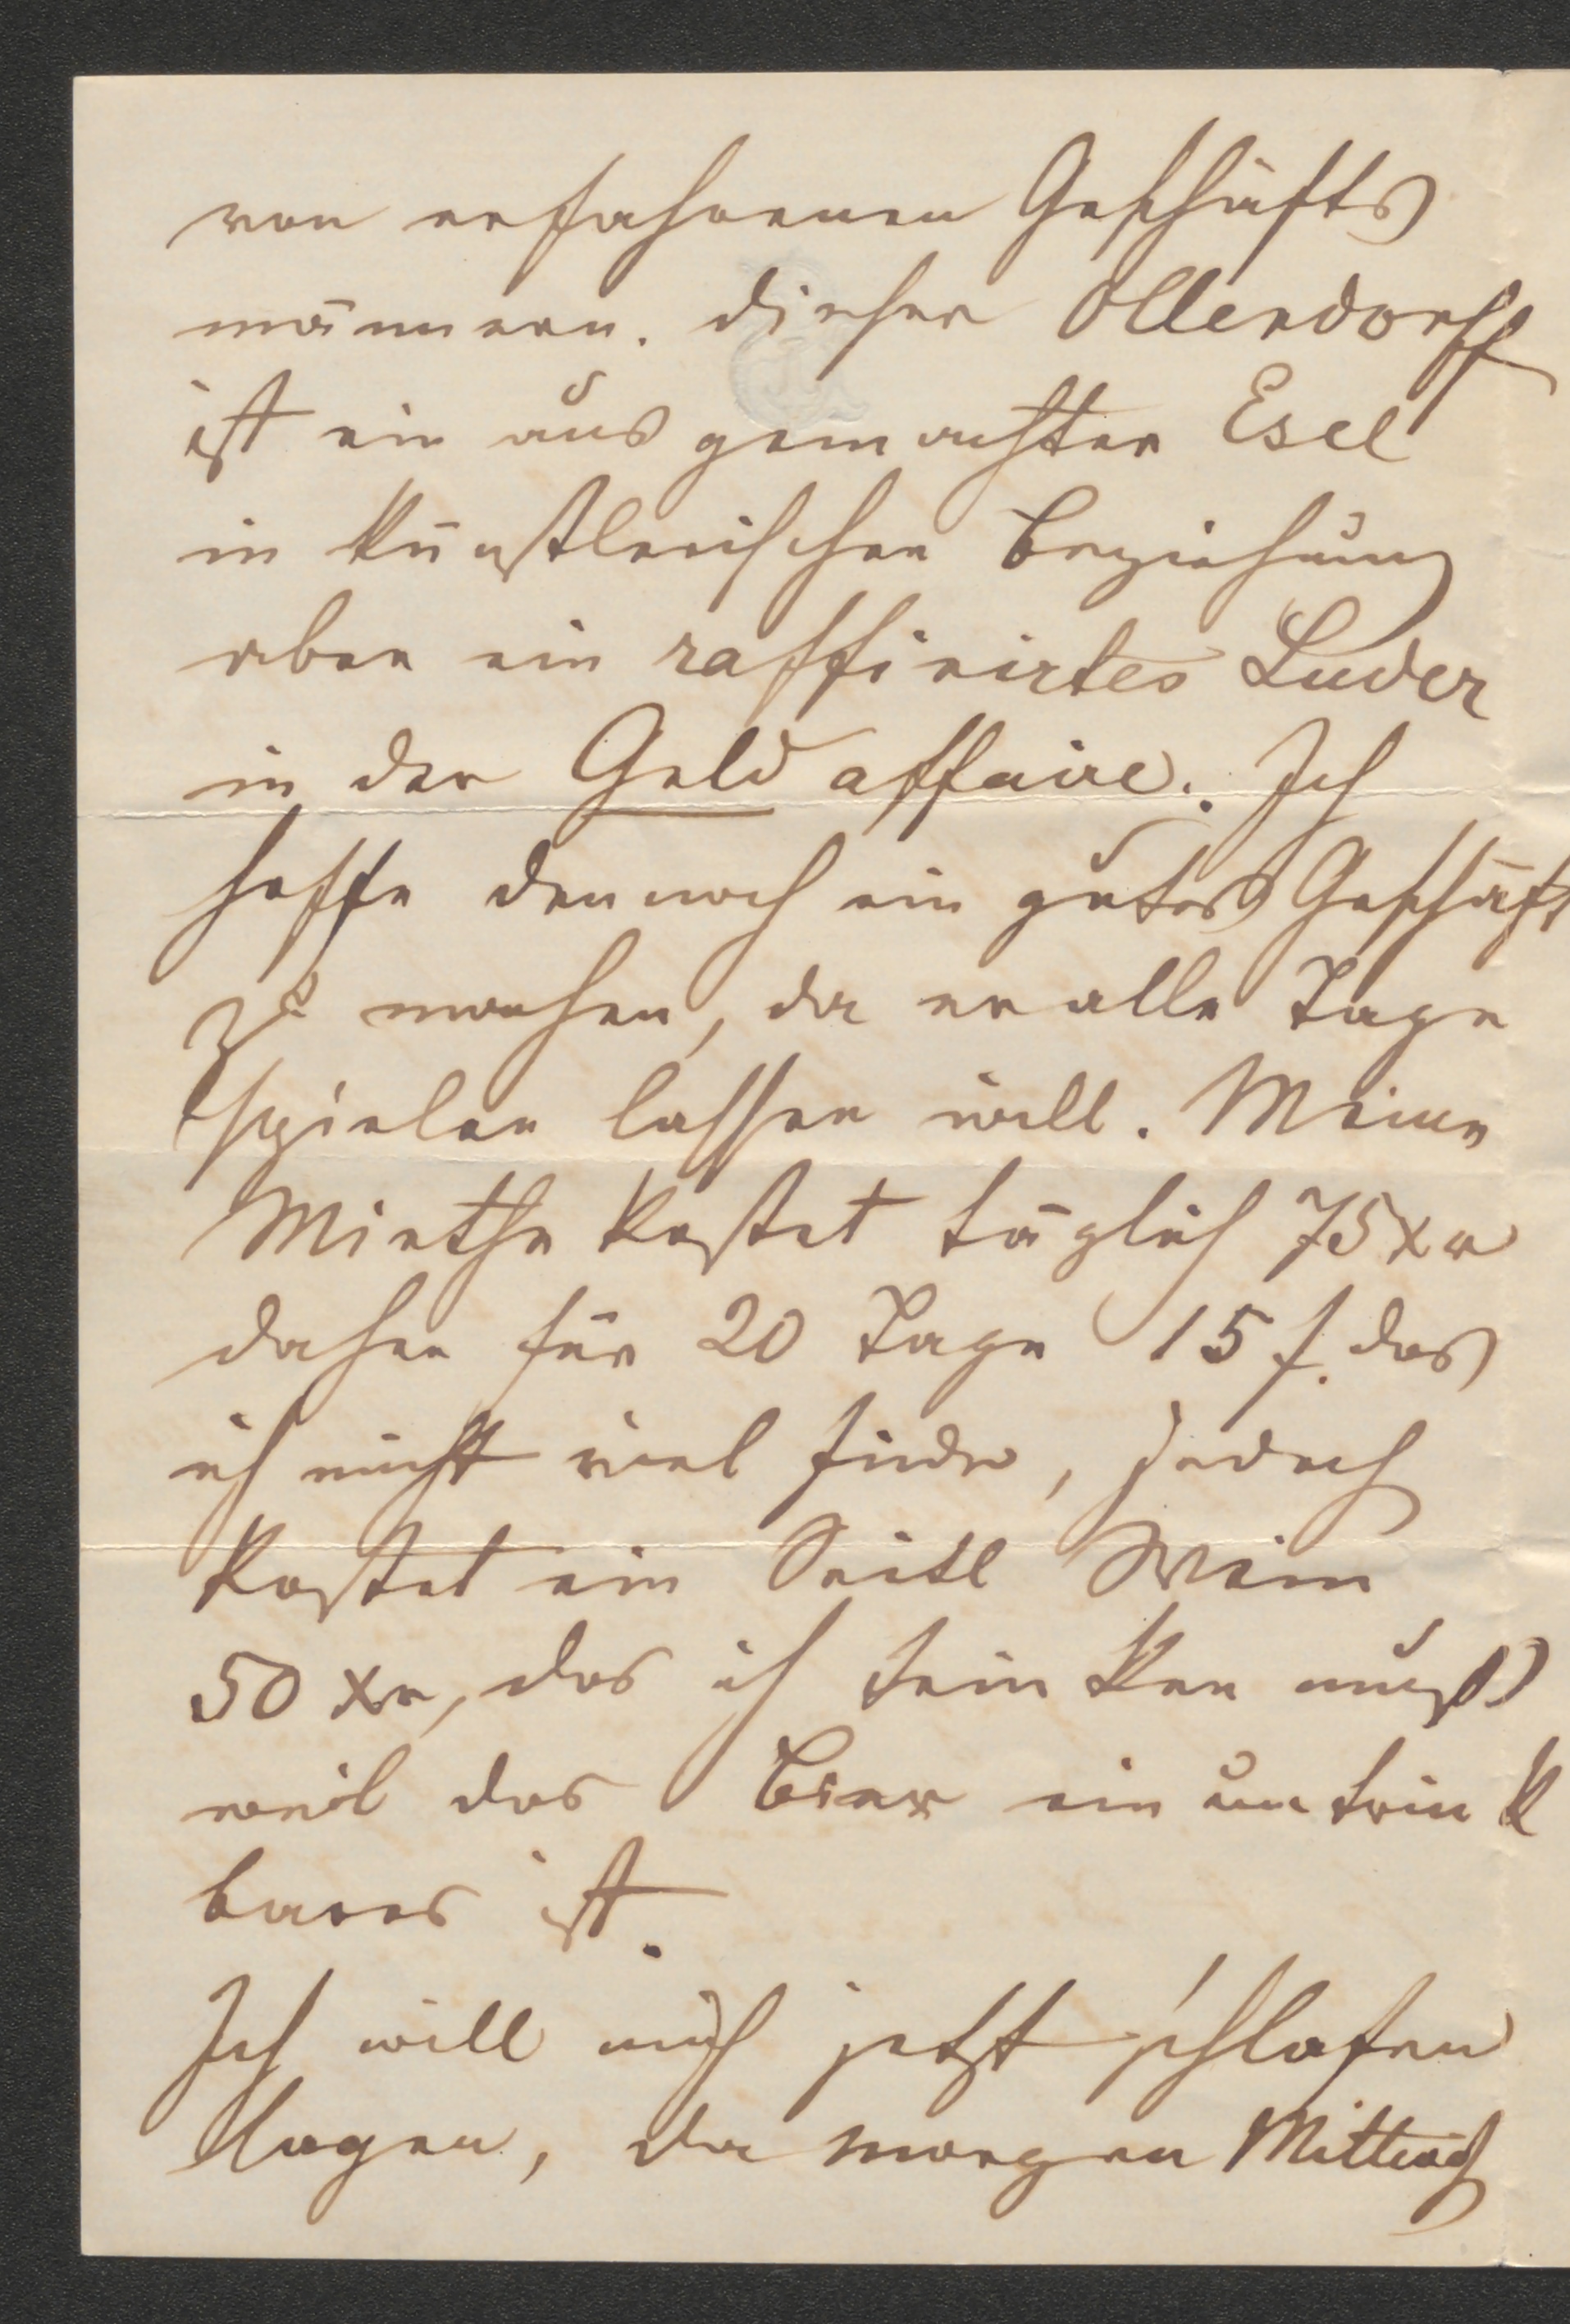 von erfahrenen Geschäfts
männern. dieser Ollendorff
ist ein aus gemachter Esel
in künstlerischer Beziehung
aber ein raffinirtes Luder
in der Geld affaire. Ich
hoffe dennoch ein gutes Geschäft
zu machen, da er alle Tage
spielen lassen will. Meine
Miethe kostet täglich 75 xr
daher für 20 Tage 15 f. das
ich nicht viel finde, jedoch
kostet ein Seitl Wein
50 xr, das ich trinken muß
weil das Bier ein untrink
bares ist.
Ich will mich jetzt schlafen
legen, da morgen Mittwoch